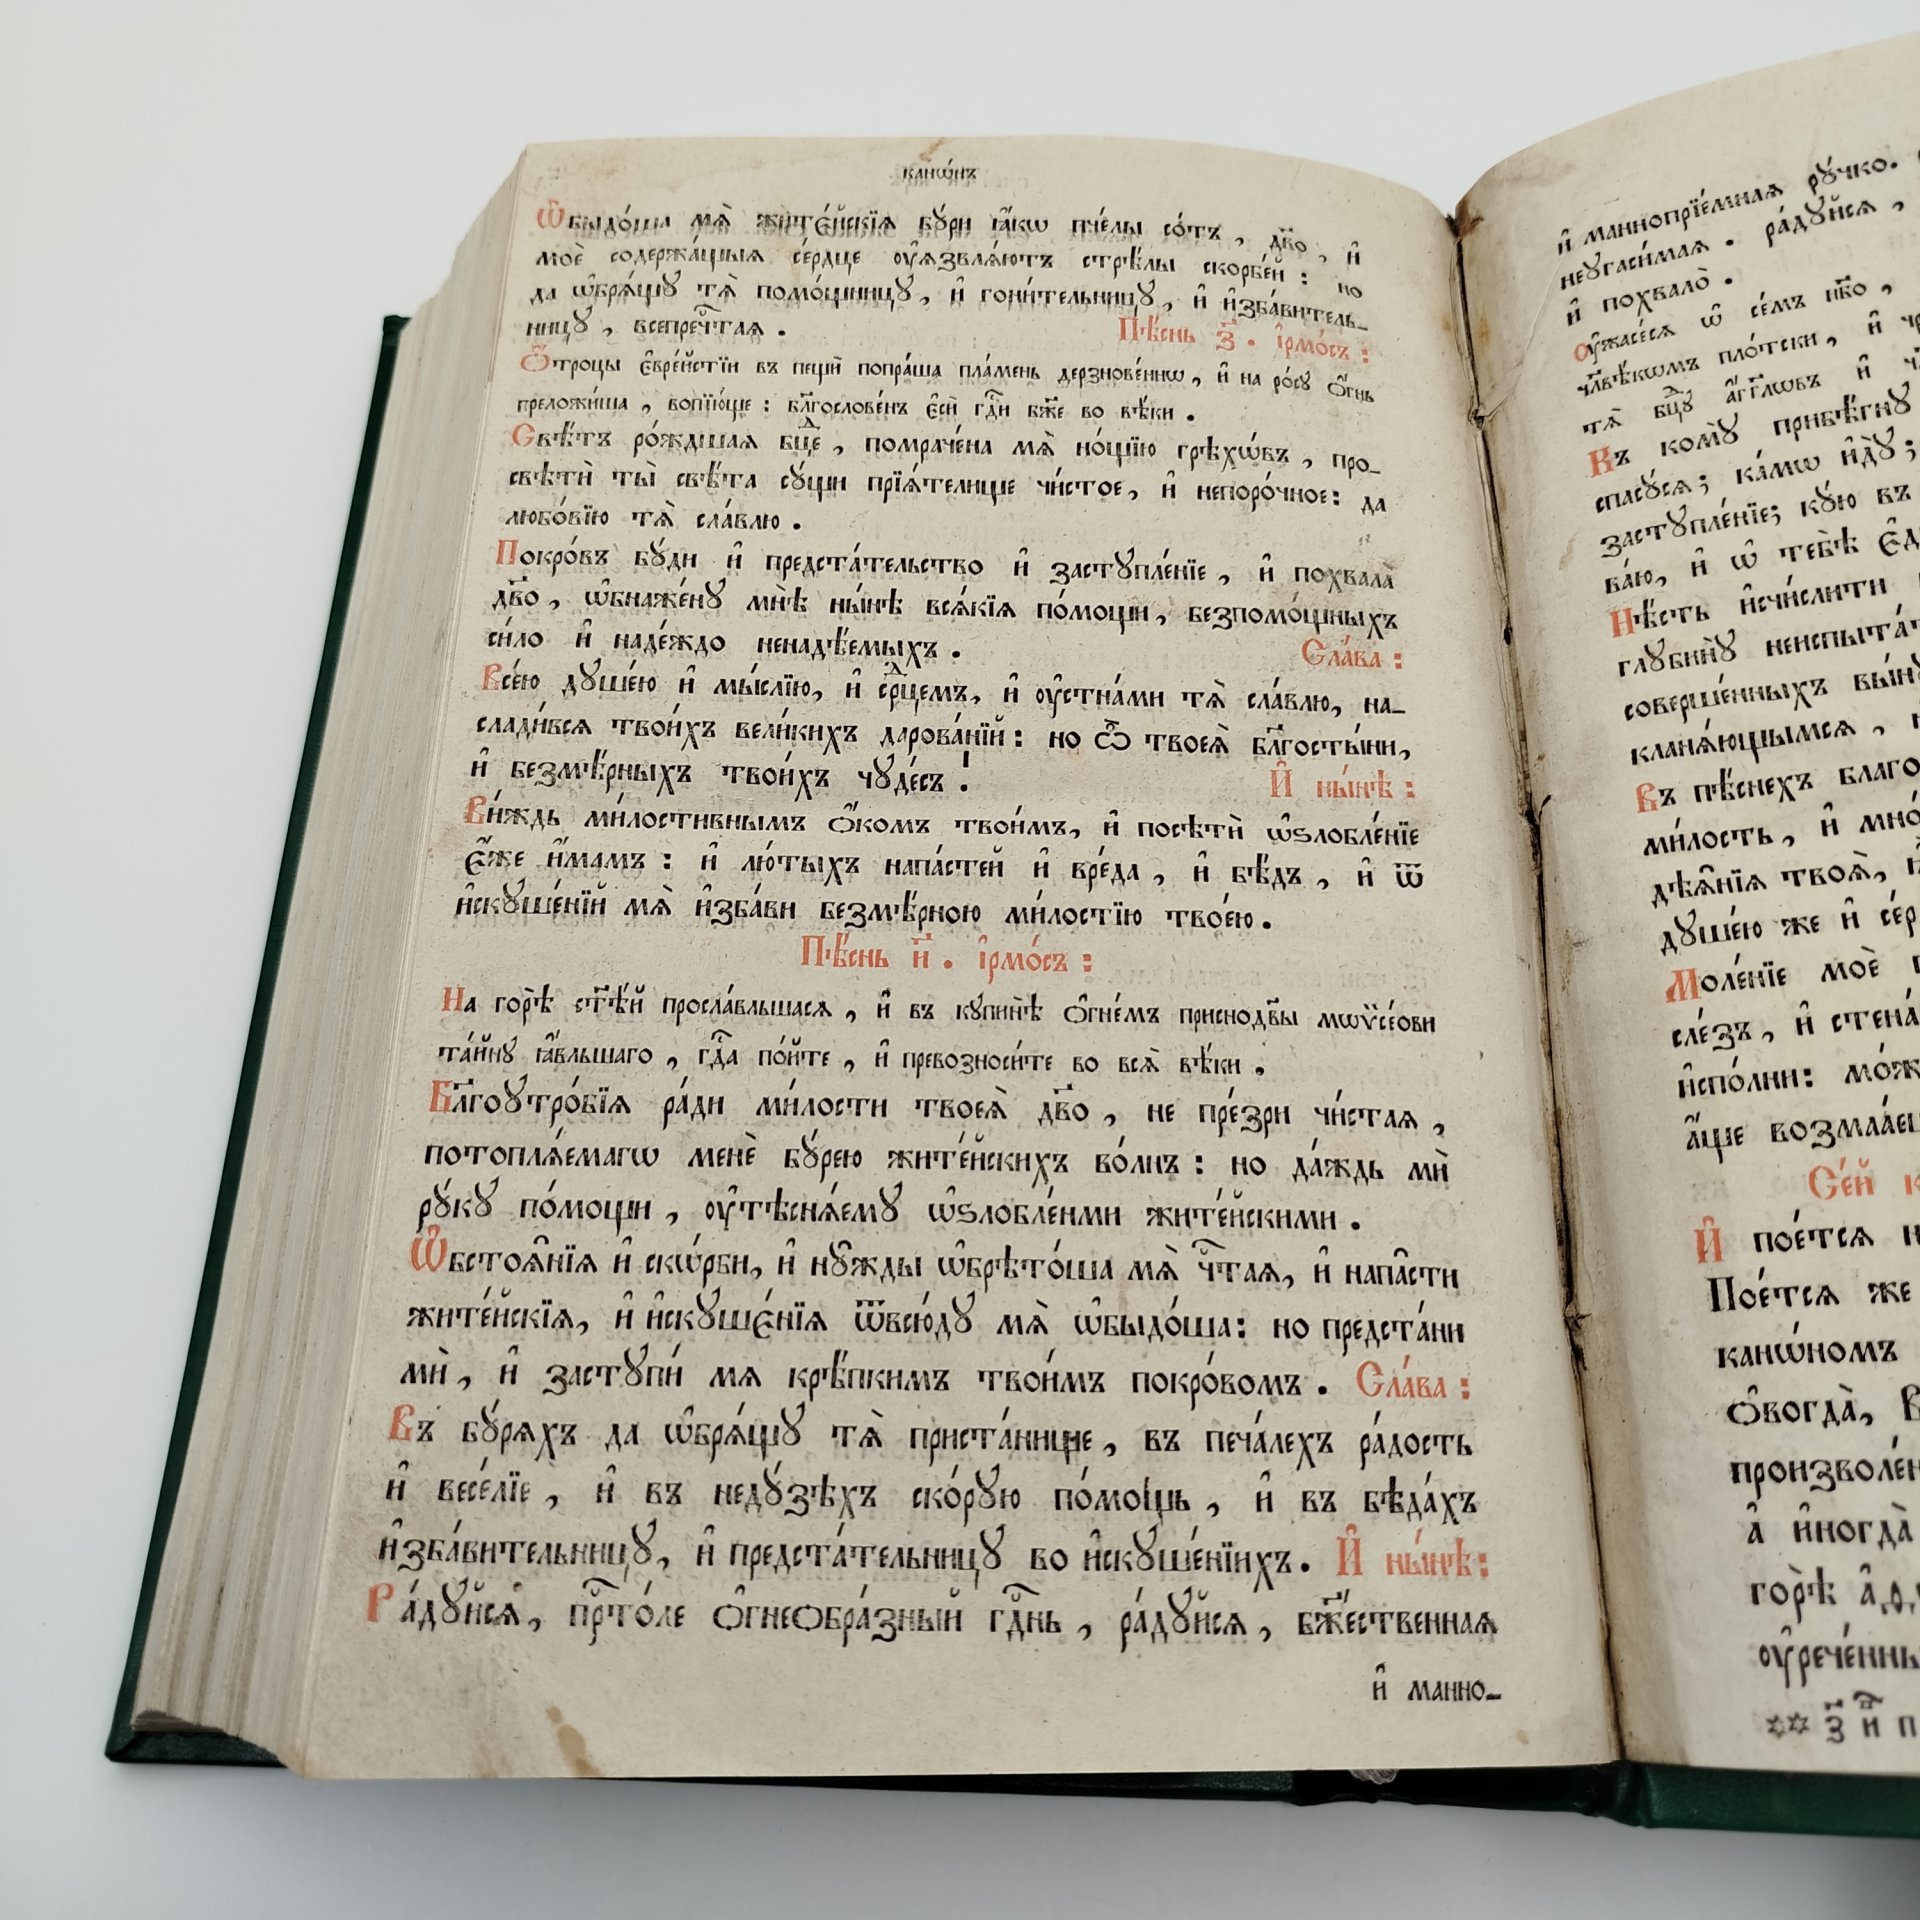 канѡ́нъ
Ѡ҆быдо́ша мѧ̀ жите́йскїѧ бꙋ́ри ꙗ҆́кѡ пче́лы со́тъ, дв҃о, и҆
моѐ содержа́щыѧ се́рдце ᲂу҆ѧзвлѧ́ютъ стрѣ́лы скорбе́й: но
да ѡ҆брѧ́щꙋ тѧ̀ помо́щницꙋ, и҆ гони́тельницꙋ, и҆ и҆зба́витель_
ницꙋ, всепречⷭ҇таѧ.
Пѣ́снь з҃. і҆рмо́съ:
Ѻ҆́троцы є҆вре́йстїи въ пещѝ попра́ша пла́мень дерзнове́ннѡ, и҆ на ро́сꙋ ѻ҆́гнь
преложи́ша, вопїю́ще: бл҃гослове́нъ є҆сѝ гдⷭ҇и бж҃е во вѣ́ки.
Свѣ́тъ ро́ждшаѧ бцⷣе, помраче́на мѧ̀ но́щїю грѣхѡ́въ, про_
свѣтѝ ты̀ свѣ́та сꙋ́щи прїѧ́телище чи́стое, и҆ непоро́чное: да
любо́вїю тѧ̀ сла́влю.
Покро́въ бꙋ́ди и҆ предста́тельство и҆ застꙋпле́нїе, и҆ похвала̀
дв҃о, ѡ҆бнаже́нꙋ мнѣ̀ ны́нѣ всѧ́кїѧ по́мощи, безпомо́щныхъ
си́ло и҆ наде́ждо ненадѣ́емыхъ.
Сла́ва:
Все́ю дꙋше́ю и҆ мы́слїю, и҆ срⷣцемъ, и҆ ᲂу҆стна́ми тѧ̀ сла́влю, на_
слади́всѧ твои́хъ вели́кихъ дарова́нїй: но ѽ твоеѧ̀ бл҃госты́ни,
и҆ безмѣ́рныхъ твои́хъ чꙋде́съ!
И҆ ны́нѣ:
Ви́ждь ми́лостивнымъ ѻ҆́комъ твои́мъ, и҆ посѣтѝ ѡ҆ѕлобле́нїе
є҆́же и҆́мамъ: и҆ лю́тыхъ напа́стей и҆ вре́да, и҆ бѣ́дъ, и҆ ѿ
и҆скꙋше́нїй мѧ̀ и҆зба́ви безмѣ́рною ми́лостїю твое́ю.
Пѣ́снь и҃. і҆рмо́съ:
На горѣ̀ ст҃ѣ́й просла́вльшасѧ, и҆ въ кꙋпинѣ̀ ѻ҆гне́мъ приснодв҃ы мѡѷсе́ови
та́йнꙋ ꙗ҆́вльшаго, гдⷭ҇а по́йте, и҆ превозноси́те во всѧ̀ вѣ́ки.
Бл҃гоꙋтро́бїѧ ра́ди ми́лости твоеѧ̀ дв҃о, не пре́зри чи́стаѧ,
потоплѧ́емагѡ менѐ бꙋ́рею жите́йскихъ во́лнъ: но да́ждь мѝ
рꙋ́кꙋ по́мощи, ᲂу҆тѣснѧ́емꙋ ѡ҆ѕлобле́нми жите́йскими.
Ѡ҆бстоѧ̑нїѧ и҆ скѡ́рби, и҆ нꙋ̑жды ѡ҆брѣто́ша мѧ̀ чⷭ҇таѧ, и҆ напа̑сти
жите́йскїѧ, и҆ и҆скꙋше́нїѧ ѿвсю́дꙋ мѧ̀ ѡ҆быдо́ша: но предста́ни
мѝ, и҆ застꙋпи́ мѧ крѣ́пкимъ твои́мъ покро́вомъ. Сла́ва:
Въ бꙋ́рѧхъ да ѡ҆брѧ́щꙋ тѧ̀ приста́нище, въ печа́лехъ ра́дость
и҆ весе́лїе, и҆ въ недꙋ́зѣхъ ско́рꙋю по́мощь, и҆ въ бѣда́хъ
и҆зба́вительницꙋ, и҆ предста́тельницꙋ во и҆скꙋше́нїихъ. И҆ ны́нѣ:
Ра́дꙋйсѧ, прⷭ҇то́ле ѻ҆гнеѻбра́зный гдⷭ҇нь, ра́дꙋйсѧ, бж҃е́ственнаѧ
и҆ манно_
и҆ маннопрїе́мнаѧ рꙋ́чко.
неꙋгаси́маѧ. ра́дꙋйсѧ,
и҆ похвало̀.
Оу҆жасе́сѧ ѡ҆ се́мъ нб҃о,
чл҃вѣ́кѡмъ пло́тски, и҆
тѧ̀ бцⷣꙋ а҆́гг҃лѡвъ и҆
Къ комꙋ̀ прибѣ́гнꙋ
спасꙋ́сѧ; ка́мѡ и҆дꙋ̀;
застꙋпле́нїе; кꙋ́ю въ
ва́ю, и҆ ѡ҆ тебѣ̀
Нѣ́сть и҆счи́слити
глꙋбинꙋ̀
соверше́нныхъ
кланѧ́ющымсѧ,
Въ пѣ́снехъ
ми́лость, и҆
дѣѧ̑нїѧ твоѧ̑,
дꙋше́ю же и҆
Моле́нїе моѐ
сле́зъ, и҆
и҆спо́лни:
а҆́ще
Се́й
И҆ пое́тсѧ
Пое́тсѧ же
канѡ́номъ
ѻ҆вогда̀,
а҆ и҆ногда̀
горѣ̀
** з҃ и҃